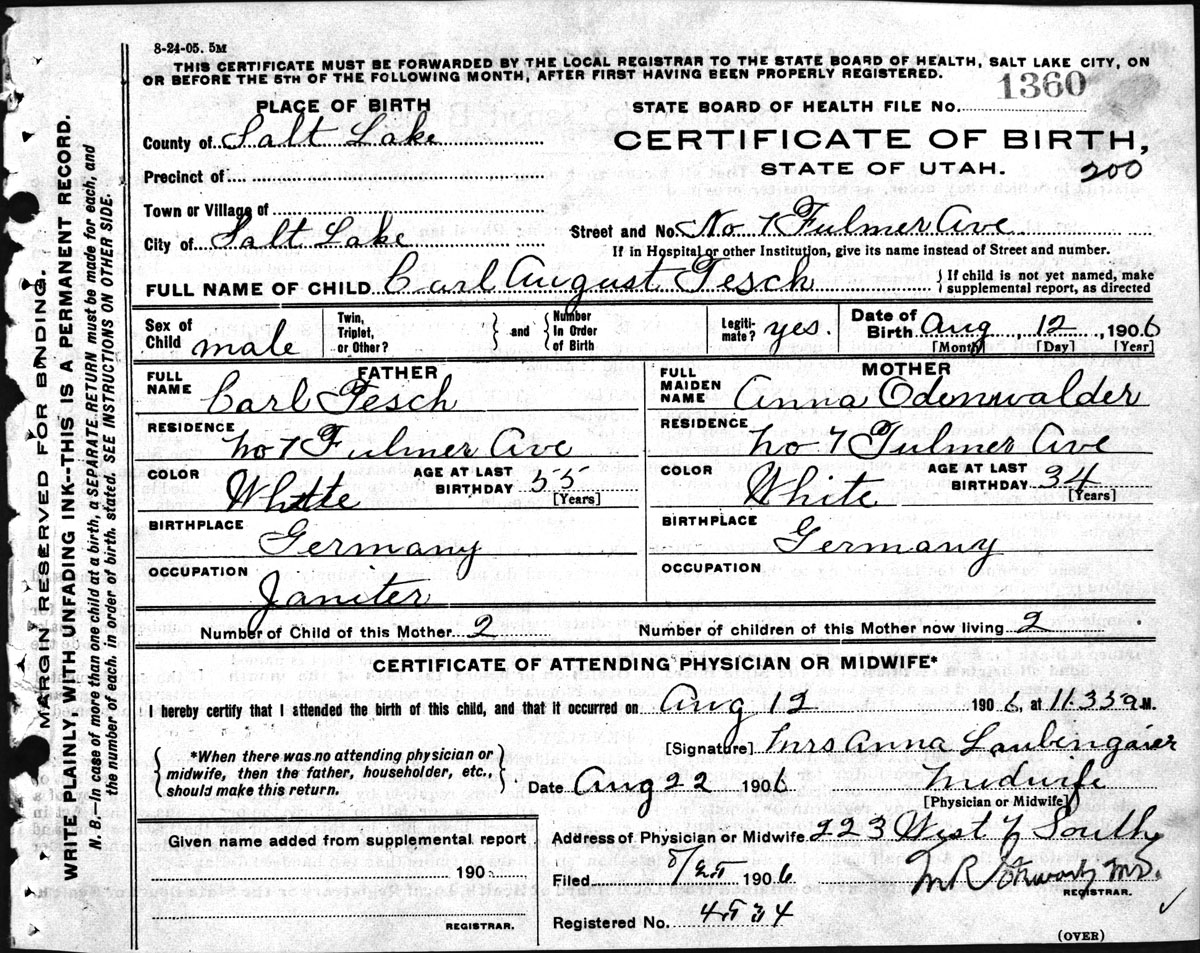 8-24-05. 5M
THIS CERTIFICATE MUST BE FORWARDED BY THE LOCAL REGISTRAR TO THE STATE BOARD OF HEALTH, SALT LAKE CITY, ON
OR BEFORE THE 5TH OF THE FOLLOWING MONTH, AFTER FIRST HAVING BEEN PROPERLY REGISTERED.
PLACE OF BIRTH
STATE BOARD OF HEALTH FILE No. 1360
County of Salt Lake
CERTIFICATE OF BIRTH,
Precinct of
STATE OF UTAH. 200
Town or Village of
City of Salt Lake
Street and No. No 7 Fulmer Ave
If in Hospital or other Institution, give its name instead of Street and number.
FULL NAME OF CHILD Carl August Tesch
If child is not yet named, make
supplemental report, as directed
Sex of Child male
Twin, Triplet, or Other?
and
Number in Order of Birth
Legiti-mate? yes.
Date of Birth Aug 12, 1906
[Month] [Day] [Year]
FATHER
FULL NAME Carl Tesch
RESIDENCE No 7 Fulmer Ave
COLOR White
AGE AT LAST BIRTHDAY 55
[Years]
BIRTHPLACE Germany
OCCUPATION Janiter
MOTHER
FULL MAIDEN NAME Anna Odenwalder
RESIDENCE No 7 Fulmer Ave
COLOR White
AGE AT LAST BIRTHDAY 34
[Years]
BIRTHPLACE Germany
OCCUPATION
Number of Child of this Mother 2
Number of children of this Mother now living 2
CERTIFICATE OF ATTENDING PHYSICIAN OR MIDWIFE*
I hereby certify that I attended the birth of this child, and that it occurred on Aug 12 1906, at 11.35 a M.
*When there was no attending physician or
midwife, then the father, householder, etc.,
should make this return.
[Signature] Mrs Anna Laubengaier
Date Aug 22 1906
Midwife
[Physician or Midwife]
Given name added from supplemental report
190
REGISTRAR.
Address of Physician or Midwife 223 West 7 South
Filed 8/25 1906
M.D.
REGISTRAR.
Registered No. 4534
(OVER)
MARGIN RESERVED FOR BINDING.
WRITE PLAINLY, WITH UNFADING INK--THIS IS A PERMANENT RECORD.
N. B.—In case of more than one child at a birth, a SEPARATE RETURN must be made for each, and
the number of each, in order of birth, stated. SEE INSTRUCTIONS ON OTHER SIDE.